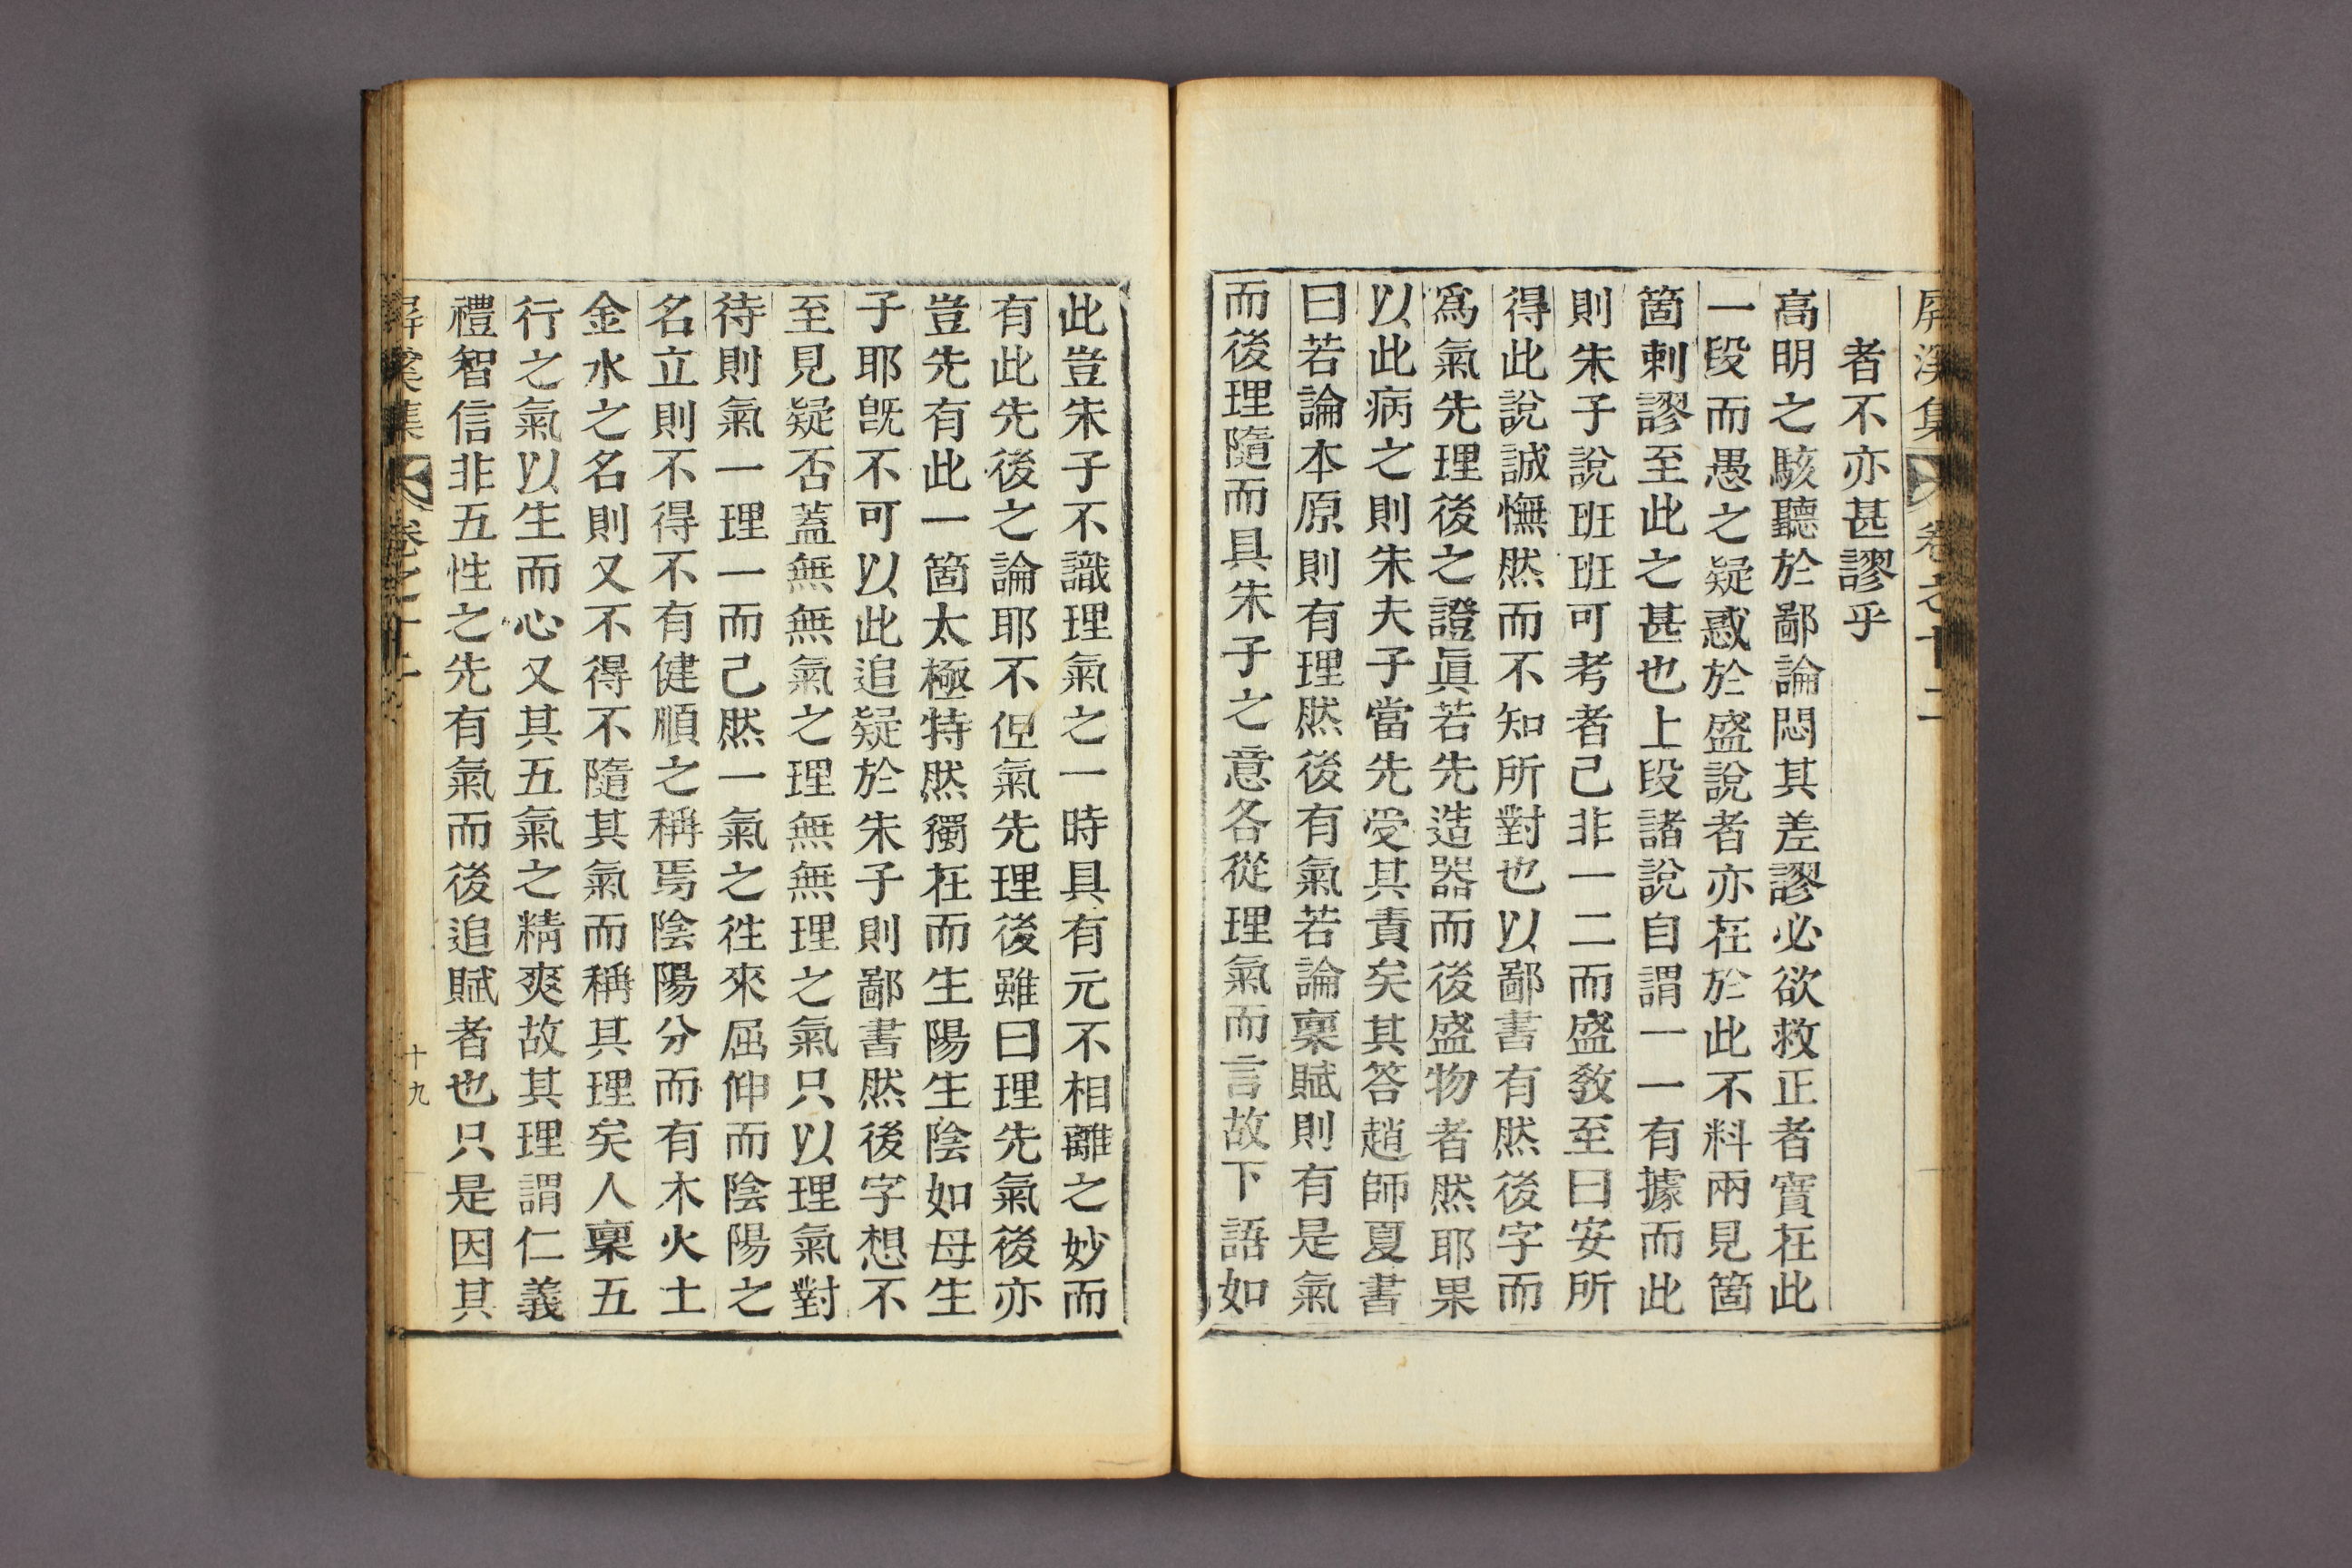 屏溪集 卷之十二
者不亦甚謬乎
高明之駭聽於鄙論悶其差謬必欲救正者實在此
一段而愚之疑惑於盛說者亦在於此不料兩見箇
箇剌謬至此之甚也上段諸說自謂一一有據而此
則朱子說班班可考者己非一二而盛敎至曰安所
得此說誠憮然而不知所對也以鄙書有然後字而
爲氣先理後之證眞若先造器而後盛物者然耶果
以此病之則朱夫子當先受其責矣其答趙師夏書
曰若論本原則有理然後有氣若論稟賦則有是氣
而後理隨而具朱子之意各從理氣而言故下語如
此豈朱子不識理氣之一時具有元不相離之妙而
有此先後之論耶不但氣先理後雖曰理先氣後亦
豈先有此一箇太極特然獨在而生陽生陰如母生
子耶旣不可以此追疑於朱子則鄙書然後字想不
至見疑否蓋無無氣之理無無理之氣只以理氣對
待則氣一理一而己然一氣之徃來屈伸而陰陽之
名立則不得不有健順之稱焉陰陽分而有木火土
金水之名則又不得不隨其氣而稱其理矣人稟五
行之氣以生而心又其五氣之精爽故其理謂仁義
禮智信非五性之先有氣而後追賦者也只是因其
屏溪集 卷之十二 十九